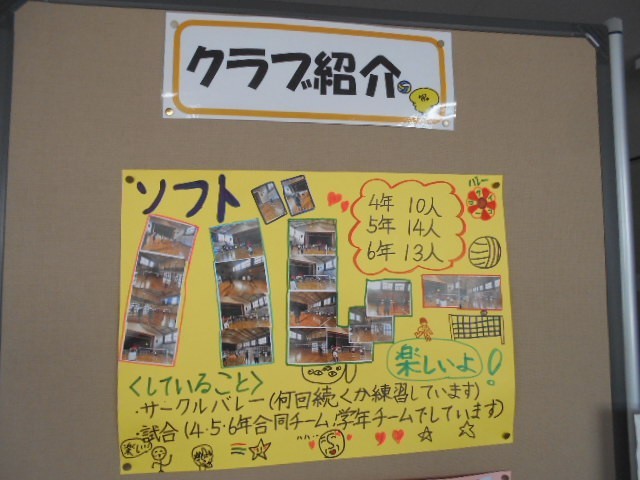 クラブ紹介
ソフト
バレー
4年 10人
5年 14人
6年 13人
バレー
楽しいよ!
<していること>
・サークルバレー(何回続くか練習しています)
・試合(4・5・6年合同チーム!学年チームでしています)
楽しい!
ハハ…